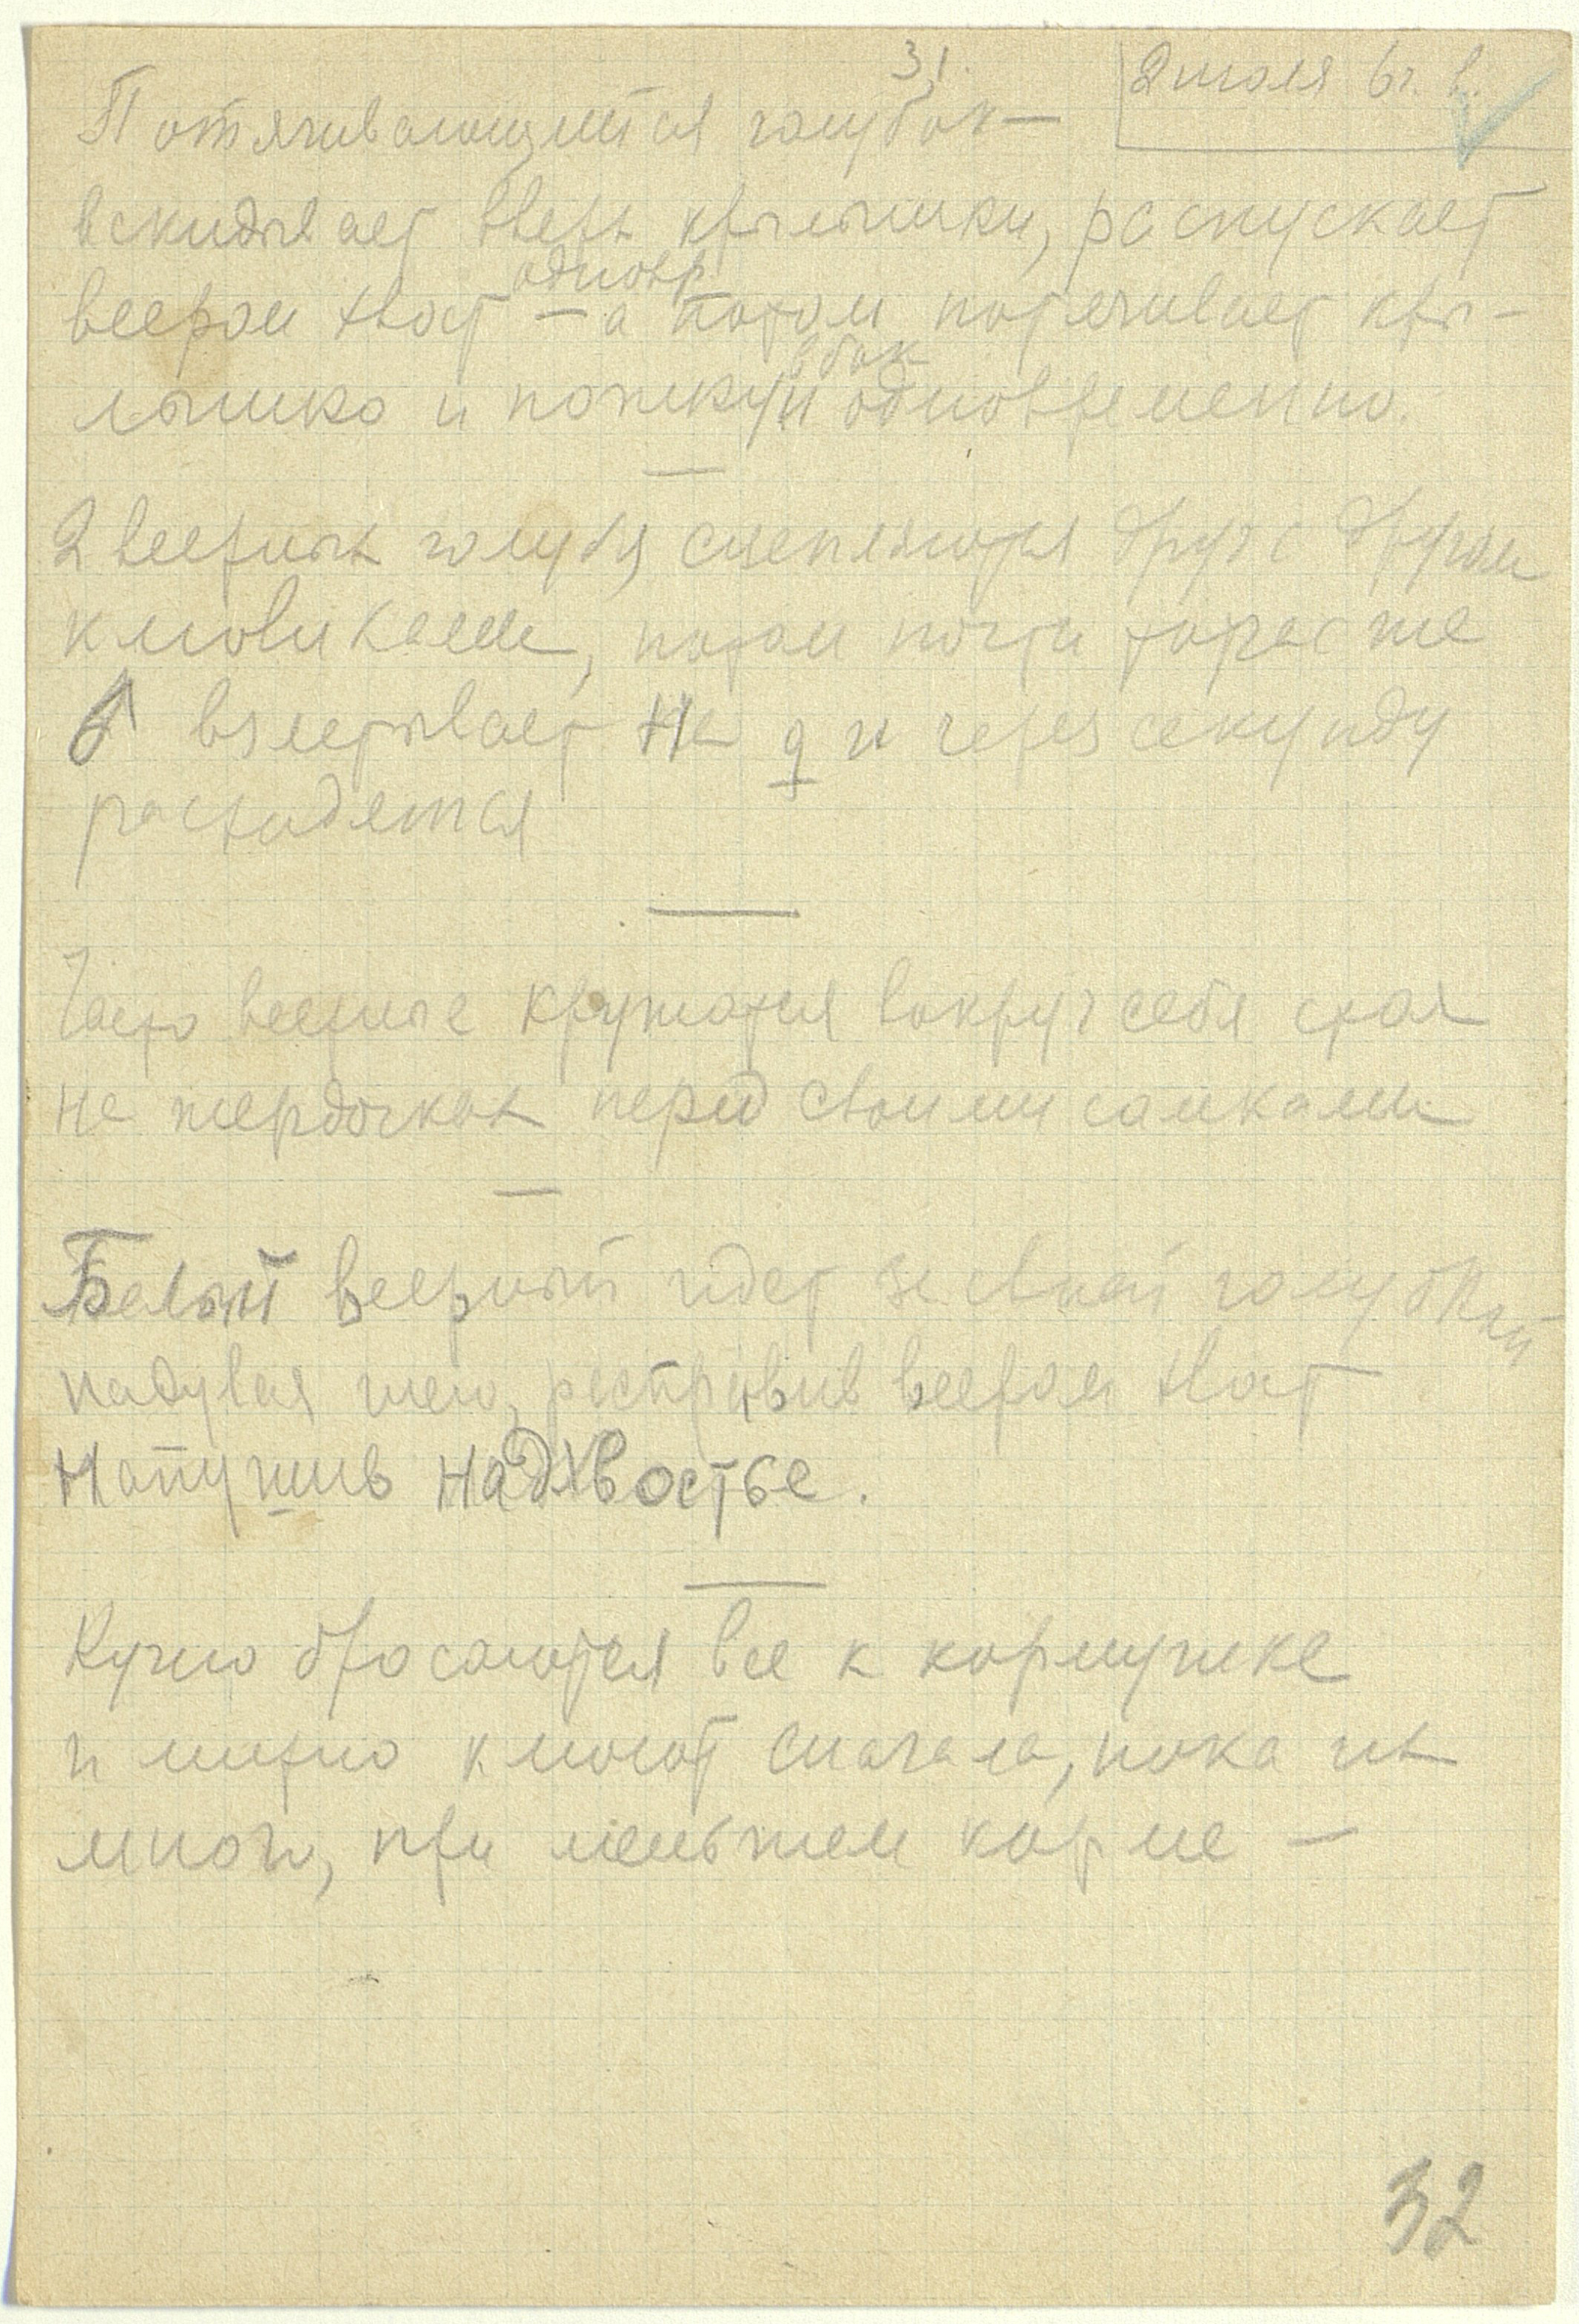 31.
2 июля 6 ч. в.
Потягивающийся голубок —
вскидывает вверх крылышки, распускает
одновр
веером хвост — а потом потягивает кры-
вбок
лышко и ножку и одновременно.
2 веерных голубя сцепляются друг с другом
клювиками, потом почти тотчас же
♂ взлетывает на ♀ и через секунду
расходятся
Часто веерные кружатся вокруг себя стоя
на жердочках перед своими самками
Белый веерный идет за своей голубкой
надувая шею, растравив веером хвост
напушив надхвостье.
Кучно бросаются все к кормушке
и мирно клюют сначала, пока их
много, при меньшем корме —
32